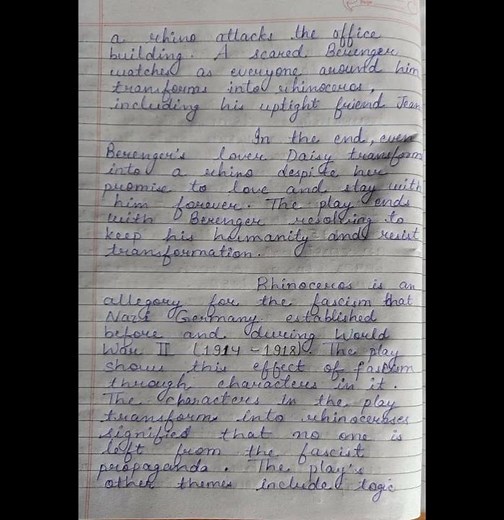 a rhino attacks the office
building. A scared Berenger
watches as everyone around him
transforms into rhinoceros,
including his uptight friend Jean
In the end, even
Berenger's lover Daisy transform
into a rhino despite her
promise to love and stay with
him forever. The play ends
with Berenger resolving to
keep his humanity and resist
transformation.
Rhinoceros is an
allegory for the fascism that
Nazi Germany established
before and during World
War II (1914-1918). The play
shows this effect of fascism
through characters in it.
The characters in the play
transforms into rhinoceroses
signifies that no one is
left from the fascist
propaganda. The play's
other themes include logic